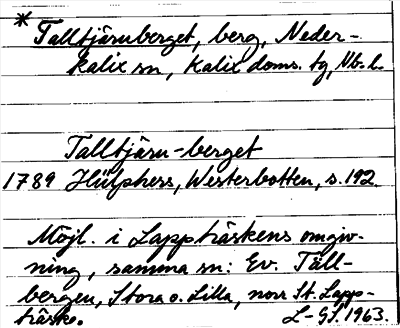 * Talltjärnberget, berg, Neder-
kalix sn, Kalix doms. tg, Nb. l.
Talltjärn-berget
1789 Hülphers, Westerbotten, s. 192
Möjl. i Lappträskens omgiv-
ning, samma sn: Ev. Täll-
bergen, Stora o. Lilla, norr St. Lapp-
träsk.
L-GL. 1963.